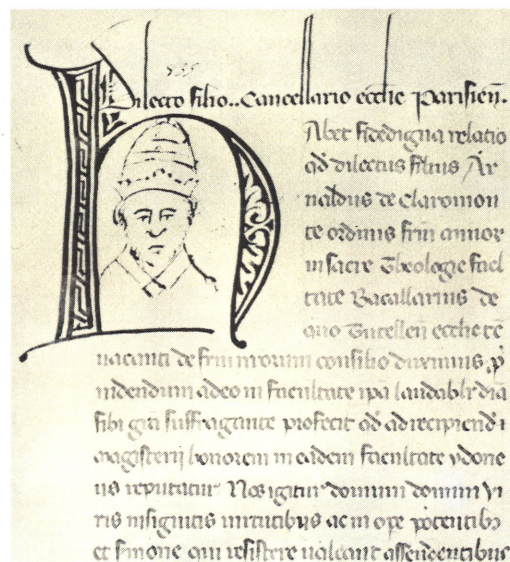 535
Dilecto filio..Cancellario ecclie Parisien̄.
HAbet fidedigna relatio
qd̄ dilectus filius Ar
naldus de Claromon
te ordinis frm̄ minor
in sacre Theologie facl
tate Bacallarius de
quo Tutellen̄ ecclie tc̄
uacanti de frm̄ nrorum consilio duximus ꝓ
uidendum adeo in facultate ip̄a laudablr diā
sibi grā suffragante profecit qd̄ ad recipiend̄ i
magisterij honorem in eadem facultate ydone
us reputatur Nos igitur domum domini vi
ris insignitis uirtutibus ac in ope potentibꝫ
et smone qui resistere ualeant assendentibus